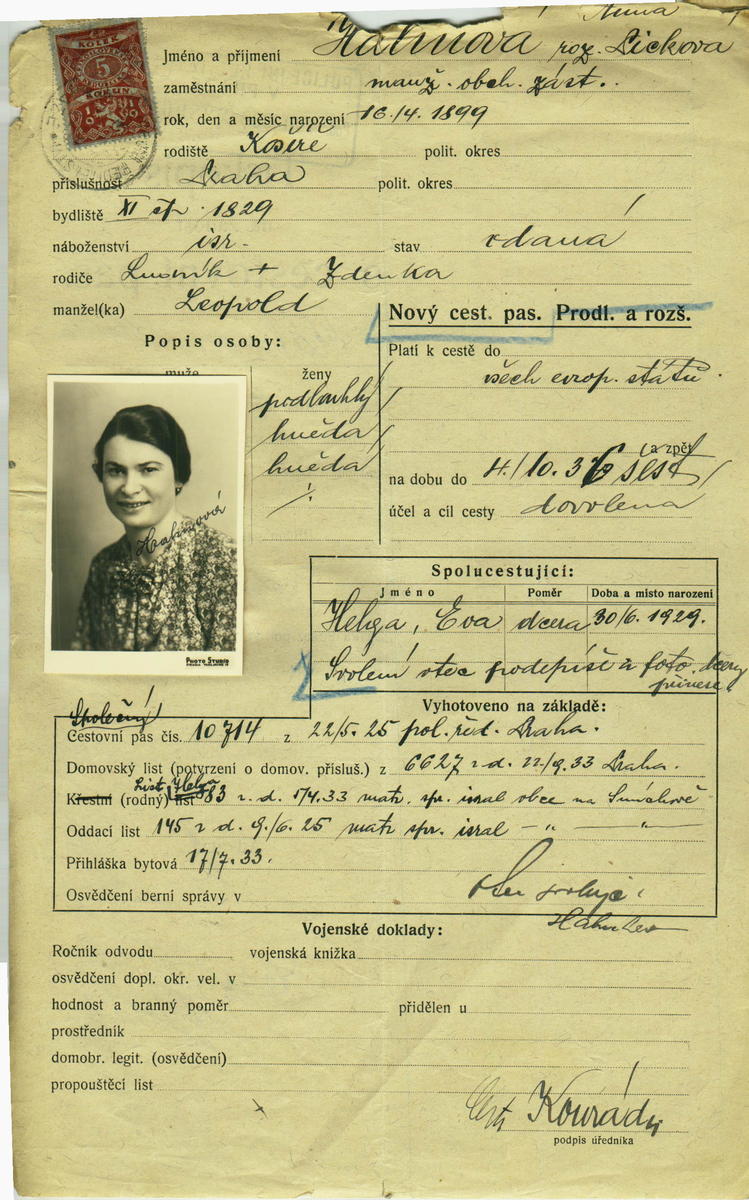 Anna
KOLEK
5
KORUN
Jméno a příjmení Hahnova roz. Lickova
zaměstnání manž. obch. zást.
rok, den a měsíc narození 16./4. 1899
rodiště Košíře polit. okres
příslušnost Praha polit. okres
bydliště XI čp. 1829
náboženství isr. stav vdaná
rodiče Ludvík + Zdenka
manžel(ka) Leopold
Nový cest. pas. Prodl. a rozš.
Popis osoby:
Platí k cestě do
všech evrop. států.
muže ženy
podlouhlý
hnědá
hnědá
(a zpět)
na dobu do 4./10. 36 šest
účel a cíl cesty dovolena
Hahnová
PHOTO STUDIO
Spolucestující:
Jméno Poměr Doba a místo narození
Helga, Eva dcera 30/6. 1929.
Svolení otec podepíše a foto. dcery
přinese
Vyhotoveno na základě:
Společný
Cestovní pas čís. 10714 z 22/5. 25 pol. řed. Praha.
Domovský list (potvrzení o domov. přísluš.) z 6627 z d. 22/9. 33 Praha.
List Helga
Křestní (rodný) list 383 z. d. 5/4. 33 matr. spr. israel obce na Smíchově
Oddací list 145 z d. 9./6. 25 matr spr. israel -„- -„-
Přihláška bytová 17/7. 33.
Osvědčení berní správy v
Vojenské doklady:
Ročník odvodu vojenská knížka
osvědčení dopl. okr. vel. v
hodnost a branný poměr přidělen u
prostředník
domobr. legit. (osvědčení)
propouštěcí list
Konrády
podpis úředníka